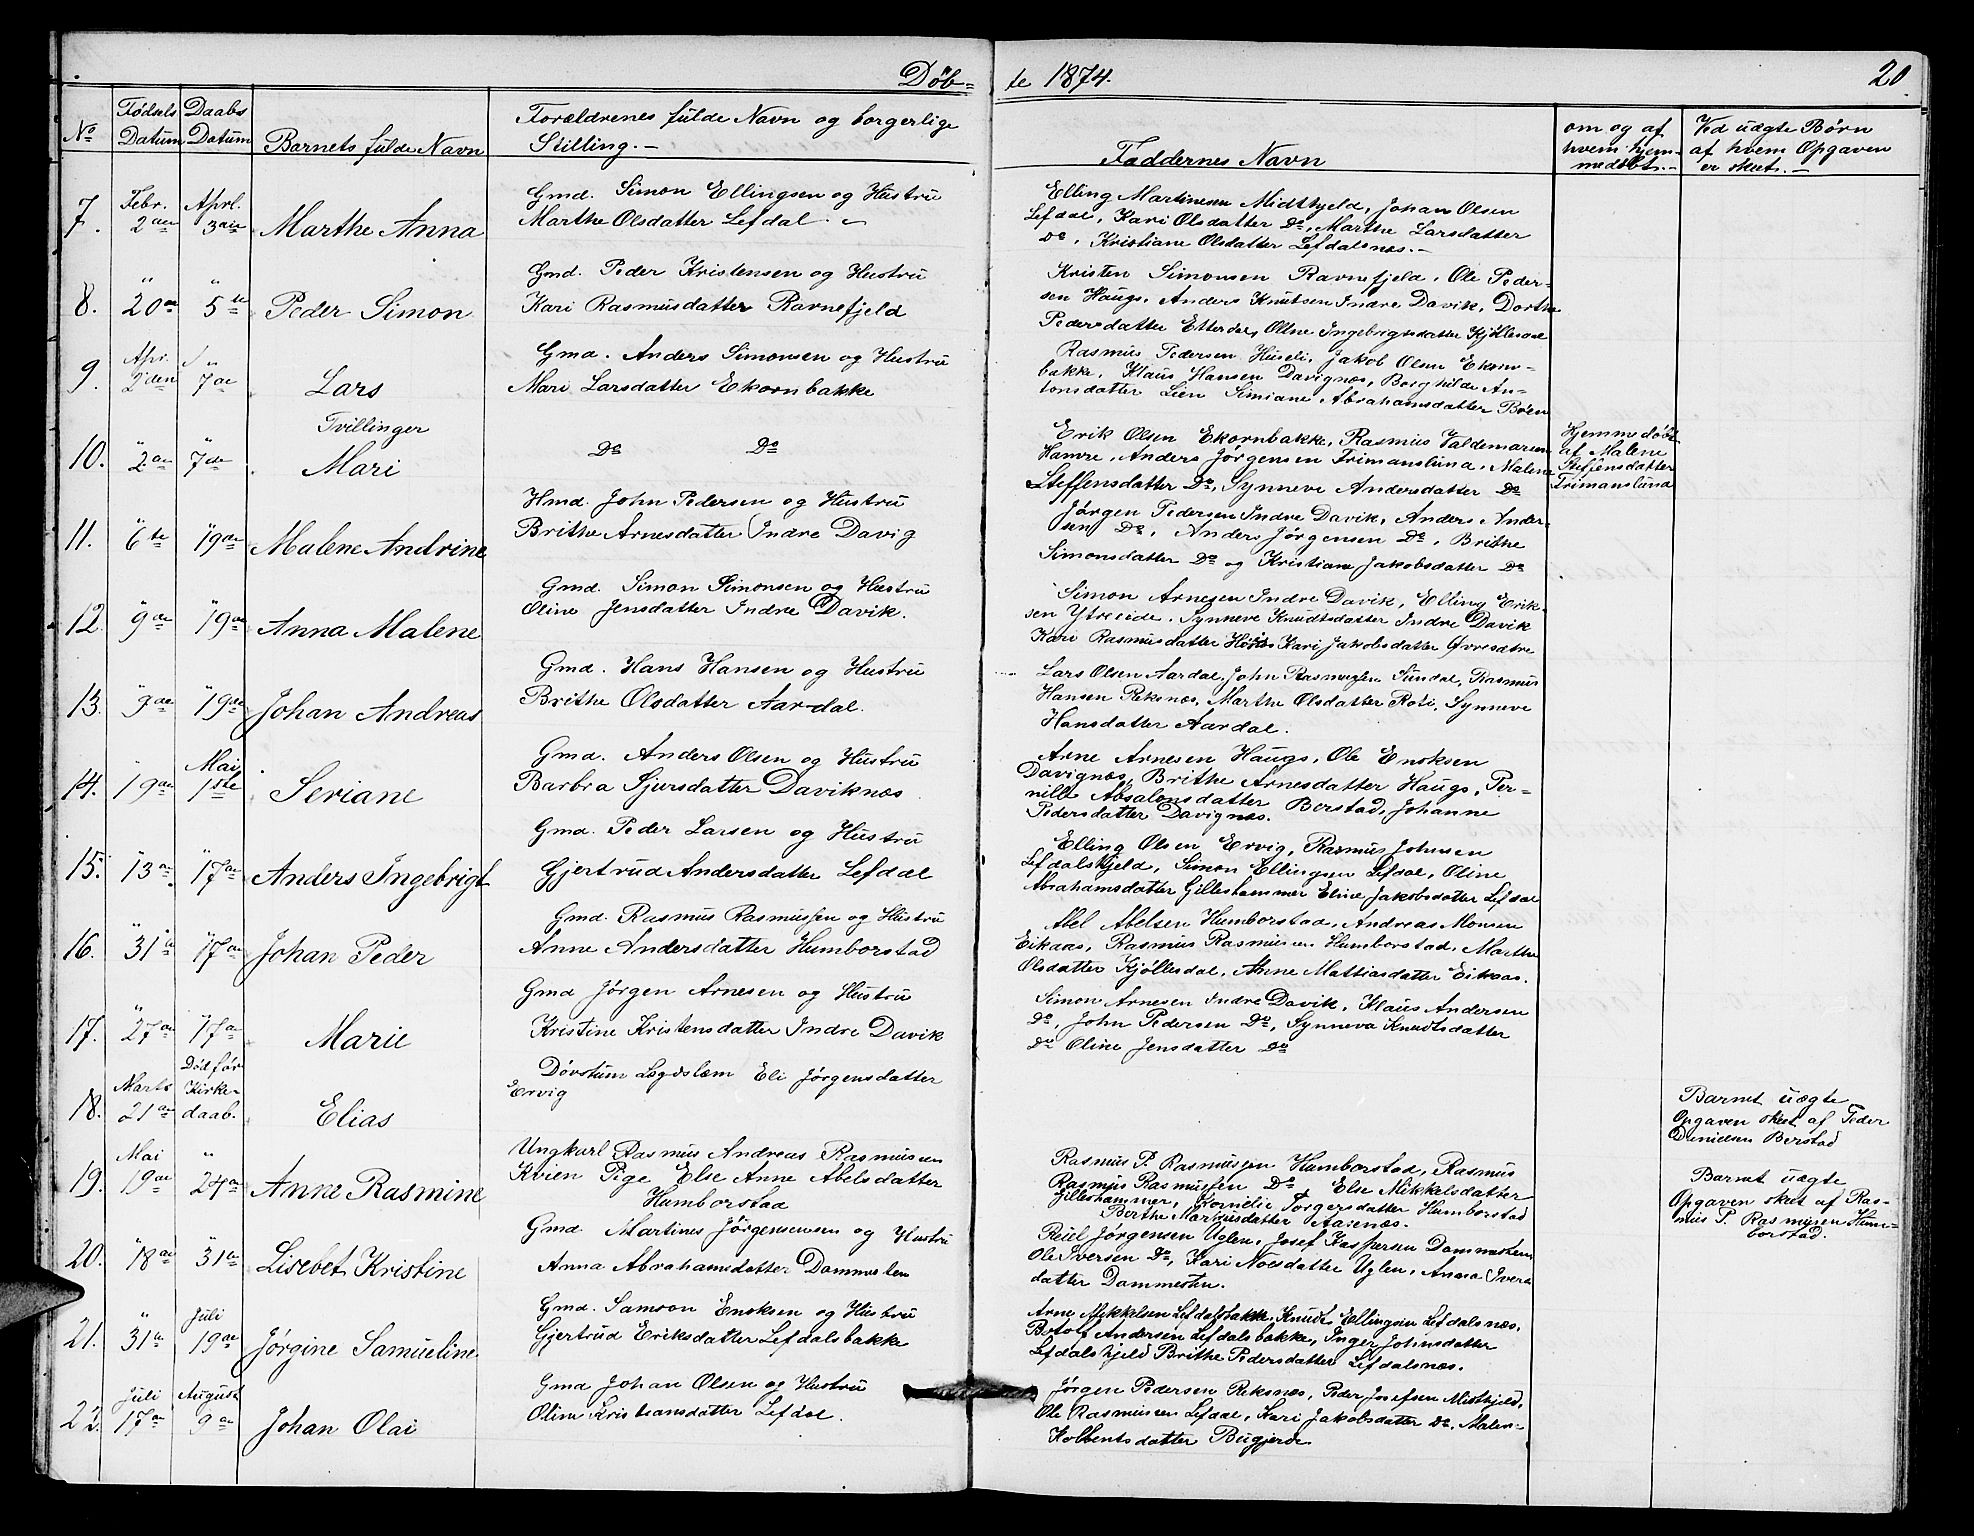 Døb-
te 1874.
20.
No
Fødsels Datum
Daabs Datum
Barnets fulde Navn
Forældrenes fulde Navn og borgerlige
Stilling.-
Faddernes Navn
om og af
hvem hjem-
medøbt.-
Ved uægte Børn
af hvem Opgaven
er skeet.-
7. Febr. 2den Aprl. 3die Marthe Anna
Gmd. Simon Ellingsen og Hustru
Marthe Olsdatter Lefdal.
Elling Martinsen Midthjeld, Johan Olsen
Lefdal, Kari Olsdatter Do, Marthe Larsdatter
Do, Kristiane Olsdatter Lefdalsnæs.-
8. " 20de " 5te Peder Simon
Gmd. Peder Kristensen og Hustru
Kari Rasmusdatter Ravnefjeld
Kristen Simonsen Ravnefjeld, Ole Peder-
sen Haugs, Anders Knutsen Indre Davik, Dorthe
Pedersdatter Etterdal, Oline Ingebrigtsdatter Kjöllesdal
9. Apr. 2den " 7de Lars
Gmd. Anders Simonsen og Hustru
Mari Larsdatter Ekornbakke
Rasmus Pedersen Huseli, Jakob Olsen Ekorn-
bakke, Klaus Hansen Davignæs, Borghilde An-
tonsdatter Lien Simiane Abrahamsdatter Böen
Tvillinger
10. " 2den " 7de Mari
Do Do
Erik Olsen Ekornbakke, Rasmus Valdemarsen
Hamre, Anders Jørgensen Frimanslund, Malene
Steffensdatter Do, Synneve Andersdatter Do
Hjemmedøbt
af Malene
Steffensdatter
Frimanslund
11. " 6te " 19de Malene Andrine
Hmd. John Pedersen og Hustru
Brithe Arnesdatter Indre Davig
Jørgen Pedersen Indre Davik, Anders Ander-
sen Do, Anders Jørgensen Do, Brithe
Simonsdatter Do og Kristiane Jakobsdatter Do
12. " 9de " 19de Anna Malene
Gmd. Simon Simonsen og Hustru
Oline Jensdatter Indre Davik.
Simon Arnesen Indre Davik, Elling Erik-
sen Ytreeide, Synneve Knudtsdatter Indre Davik
Kari Rasmusdatter Kari Jakobsdatter Øvresætre
13. " 9de " 19de Johan Andreas
Gmd. Hans Hansen og Hustru
Brithe Olsdatter Aardal.
Lars Olsen Aardal, John Rasmussen Sundal, Rasmus
Hansen Reksnæs, Marthe Olsdatter Roti, Synneve
Hansdatter Aardal.
14. 19de Mai 1ste Seriane
Gmd. Anders Olsen og Hustru
Barbra Sjursdatter Daviknæs
Arne Arnesen Haugs, Ole Enoksen
Davignæs, Brithe Arnesdatter Haugs, Per-
nille Absalonsdatter Berstad, Johanne
Pedersdatter Davignæs.
15. " 13de " 17de Anders Ingebrigt
Gmd. Peder Larsen og Hustru
Gjertrud Andersdatter Lefdal
Elling Olsen Ervig, Rasmus Johnsen
Lefdalshjeld, Simon Ellingsen Lefdal, Oline
Abrahamsdatter Gilleshammer Eline Jakobsdatter Lefdal
16. " 31te " 17de Johan Peder
Gmd. Rasmus Rasmussen og Hustru
Anne Andersdatter Humborstad
Abel Abelsen Humborstad, Andreas Monsen
Eikaas, Rasmus Rasmussen Humborstad, Marthe
Olsdatter Kjöllesdal, Anne Mattiasdatter Eikaas.
17. " 27de " 17de Marie
Gmd Jørgen Arnesen og Hustru
Kristine Kristensdatter Indre Davik
Simon Arnesen Indre Davik, Klaus Andersen
Do, John Pedersen Do, Synneva Knudtsdatter
Do Oline Jensdatter Do
18. Marts 21de Död før Kirke-daab. Elias
Døvstum Lægdslem Eli Jörgensdatter
Ervig
Barnet uægte
Opgaven skeet af Peder
Danielsen Berstad
19. Mai 19de " 24de Anne Rasmine
Ungkarl Rasmus Andreas Rasmussen
Kvien Pige Else Anne Abelsdatter
Humborstad
Rasmus P. Rasmussen Humborstad, Rasmus
Rasmus Rasmussen Do Else Mikkelsdatter
Gilleshammer, Kornelie Torgersdatter Humborstad
Berthe Markusdatter Aarenæs.
Barnet uægte
Opgaven skeet af Ras-
mus P. Rasmussen Hum-
borstad.
20. " 18de " 31te Lisebet Kristine
Gmd. Martinus Jørgensen og Hustru
Anna Abrahamsdatter Dammesten
Reiel Jørgensen Uglen, Josef Kaspersen Dammesten
Ole Iversen Do, Kari Noesdatter Uglen, Anna Ivers
datter Dammesten.
21. " 31te Juli 19de Jørgine Samueline
Gmd. Samson Enoksen og Hustru
Gjertrud Eriksdatter Lefdalsbakke
Arne Mikkelsen Lefdalsbakke, Knudt Ellingsen Lefdalsnæs,
Botolf Andersen Lefdalsbakke, Inger Johnsdatter
Lefdalshjeld Brithe Pedersdatter Lefdalsnæs.
22. Juli 17de August 9de Johan Olai
Gmd Johan Olsen og Hustru
Oline Kristiansdatter Lefdal.
Jørgen Pedersen Reksnæs, Peder Josefsen Midthjeld,
Ole Rasmussen Lefdal, Kari Jakobsdatter Do, Malen-
Kolbentsdatter Bugjerde